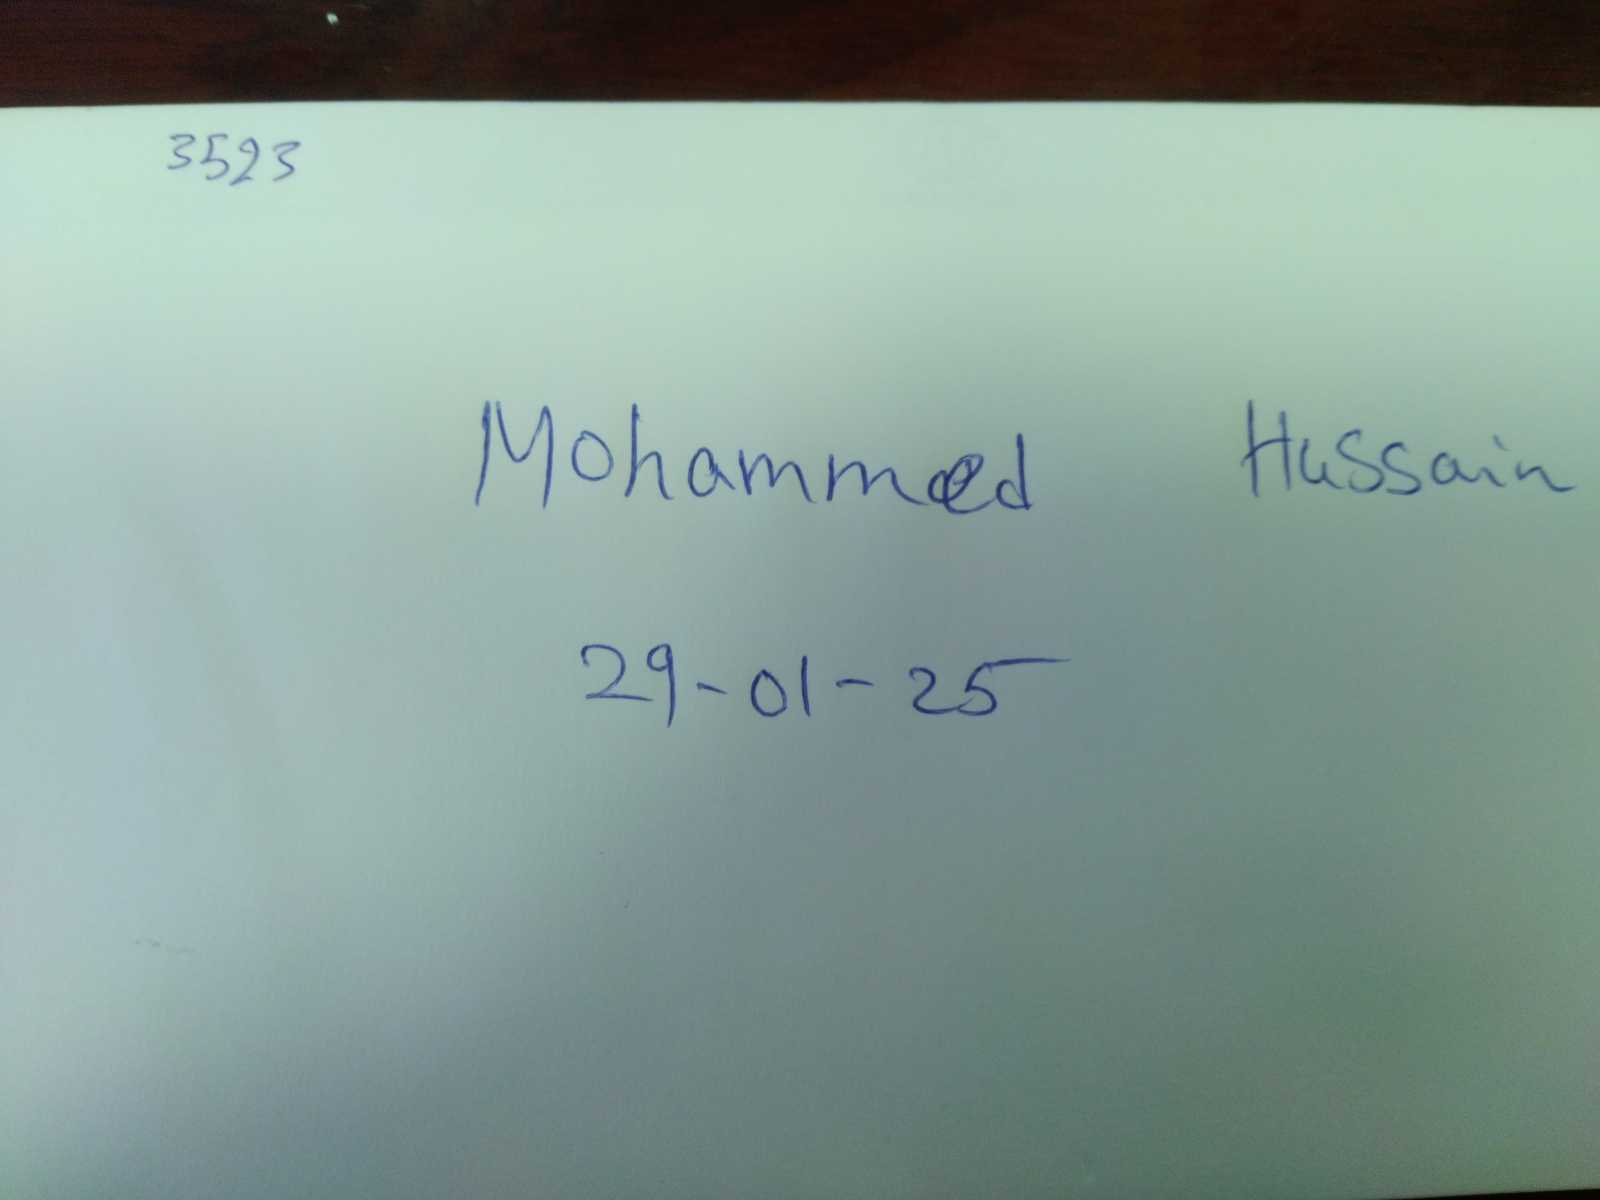 3523
Mohammed Hussain
29-01-25